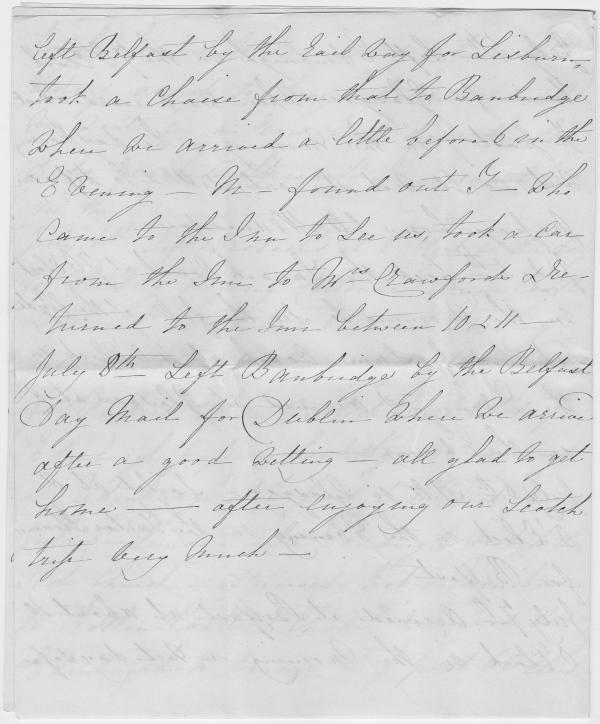 left Belfast by the Rail Way for Lisburn,
took a Chaise from that to Banbridge
where we arrived a little before 6 in the
Evening – M – found out T – who
came to the Inn to See us, took a Car
from the Inn to Mrs Crawfords & re-
turned to the Inn between 10 & 11 –
July 8th Left Banbridge by the Belfast
Day Mail for Dublin where we arrive
after a good wetting – all glad to get
home — after enjoying our Scotch
trip very much –